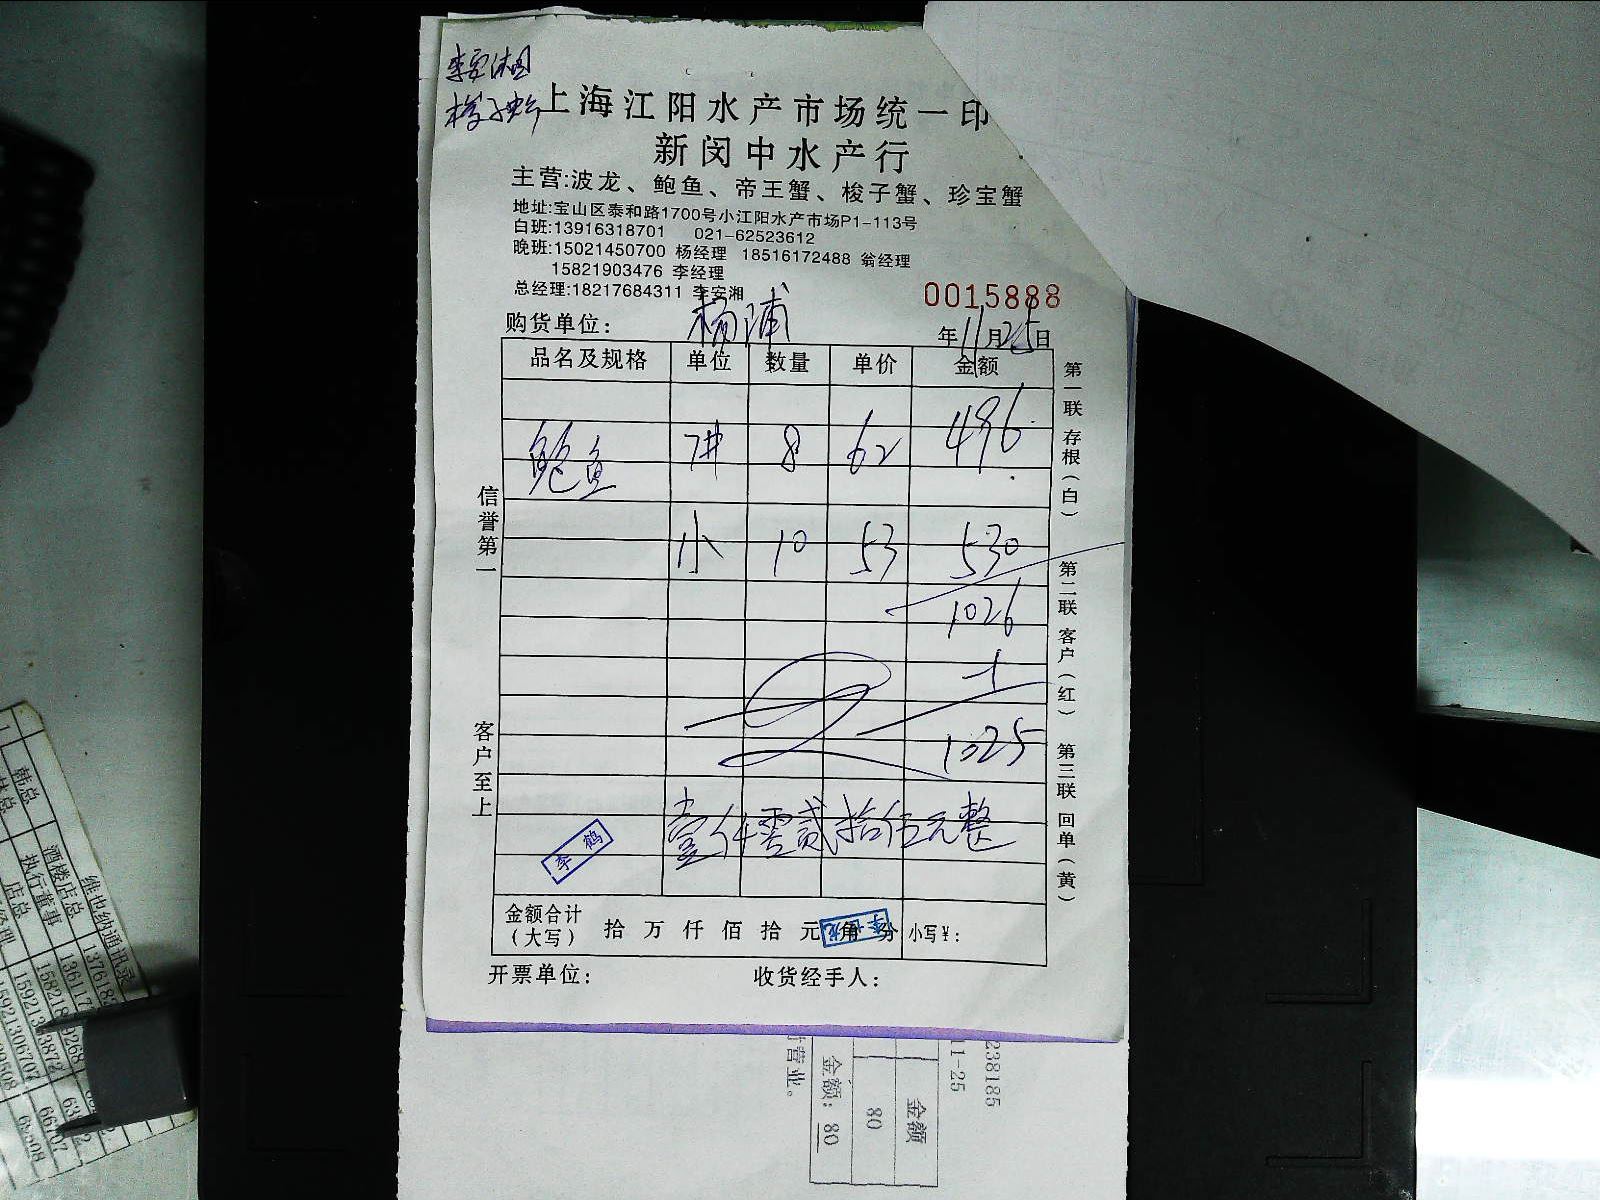 李安湘
梭子蟹
上海江阳水产市场统一印
新闵中水产行
主营:波龙、鲍鱼、帝王蟹、梭子蟹、珍宝蟹
地址:宝山区泰和路1700号小江阳水产市场P1-113号
白班:13916318701 021-62523612
晚班:15021450700 杨经理 18516172488 翁经理
15821903476 李经理
总经理:18217684311 李安湘
0015888
购货单位: 杨浦
年11月25日
品名及规格 单位 数量 单价 金额
鲍鱼 8 62 496
小 10 53 530
1026
-1
1025
壹仟零贰拾伍元整
李鹤
金额合计
(大写) 拾 万 仟 佰 拾 元 角 分 小写¥:
开票单位: 收货经手人:
信誉第一
客户至上
第一联 存根(白)
第二联 客户(红)
第三联 回单(黄)
238185
11-25
金额
80
金额: 80
营业。
维也纳通讯录
酒楼店总
执行董事
店总
韩总